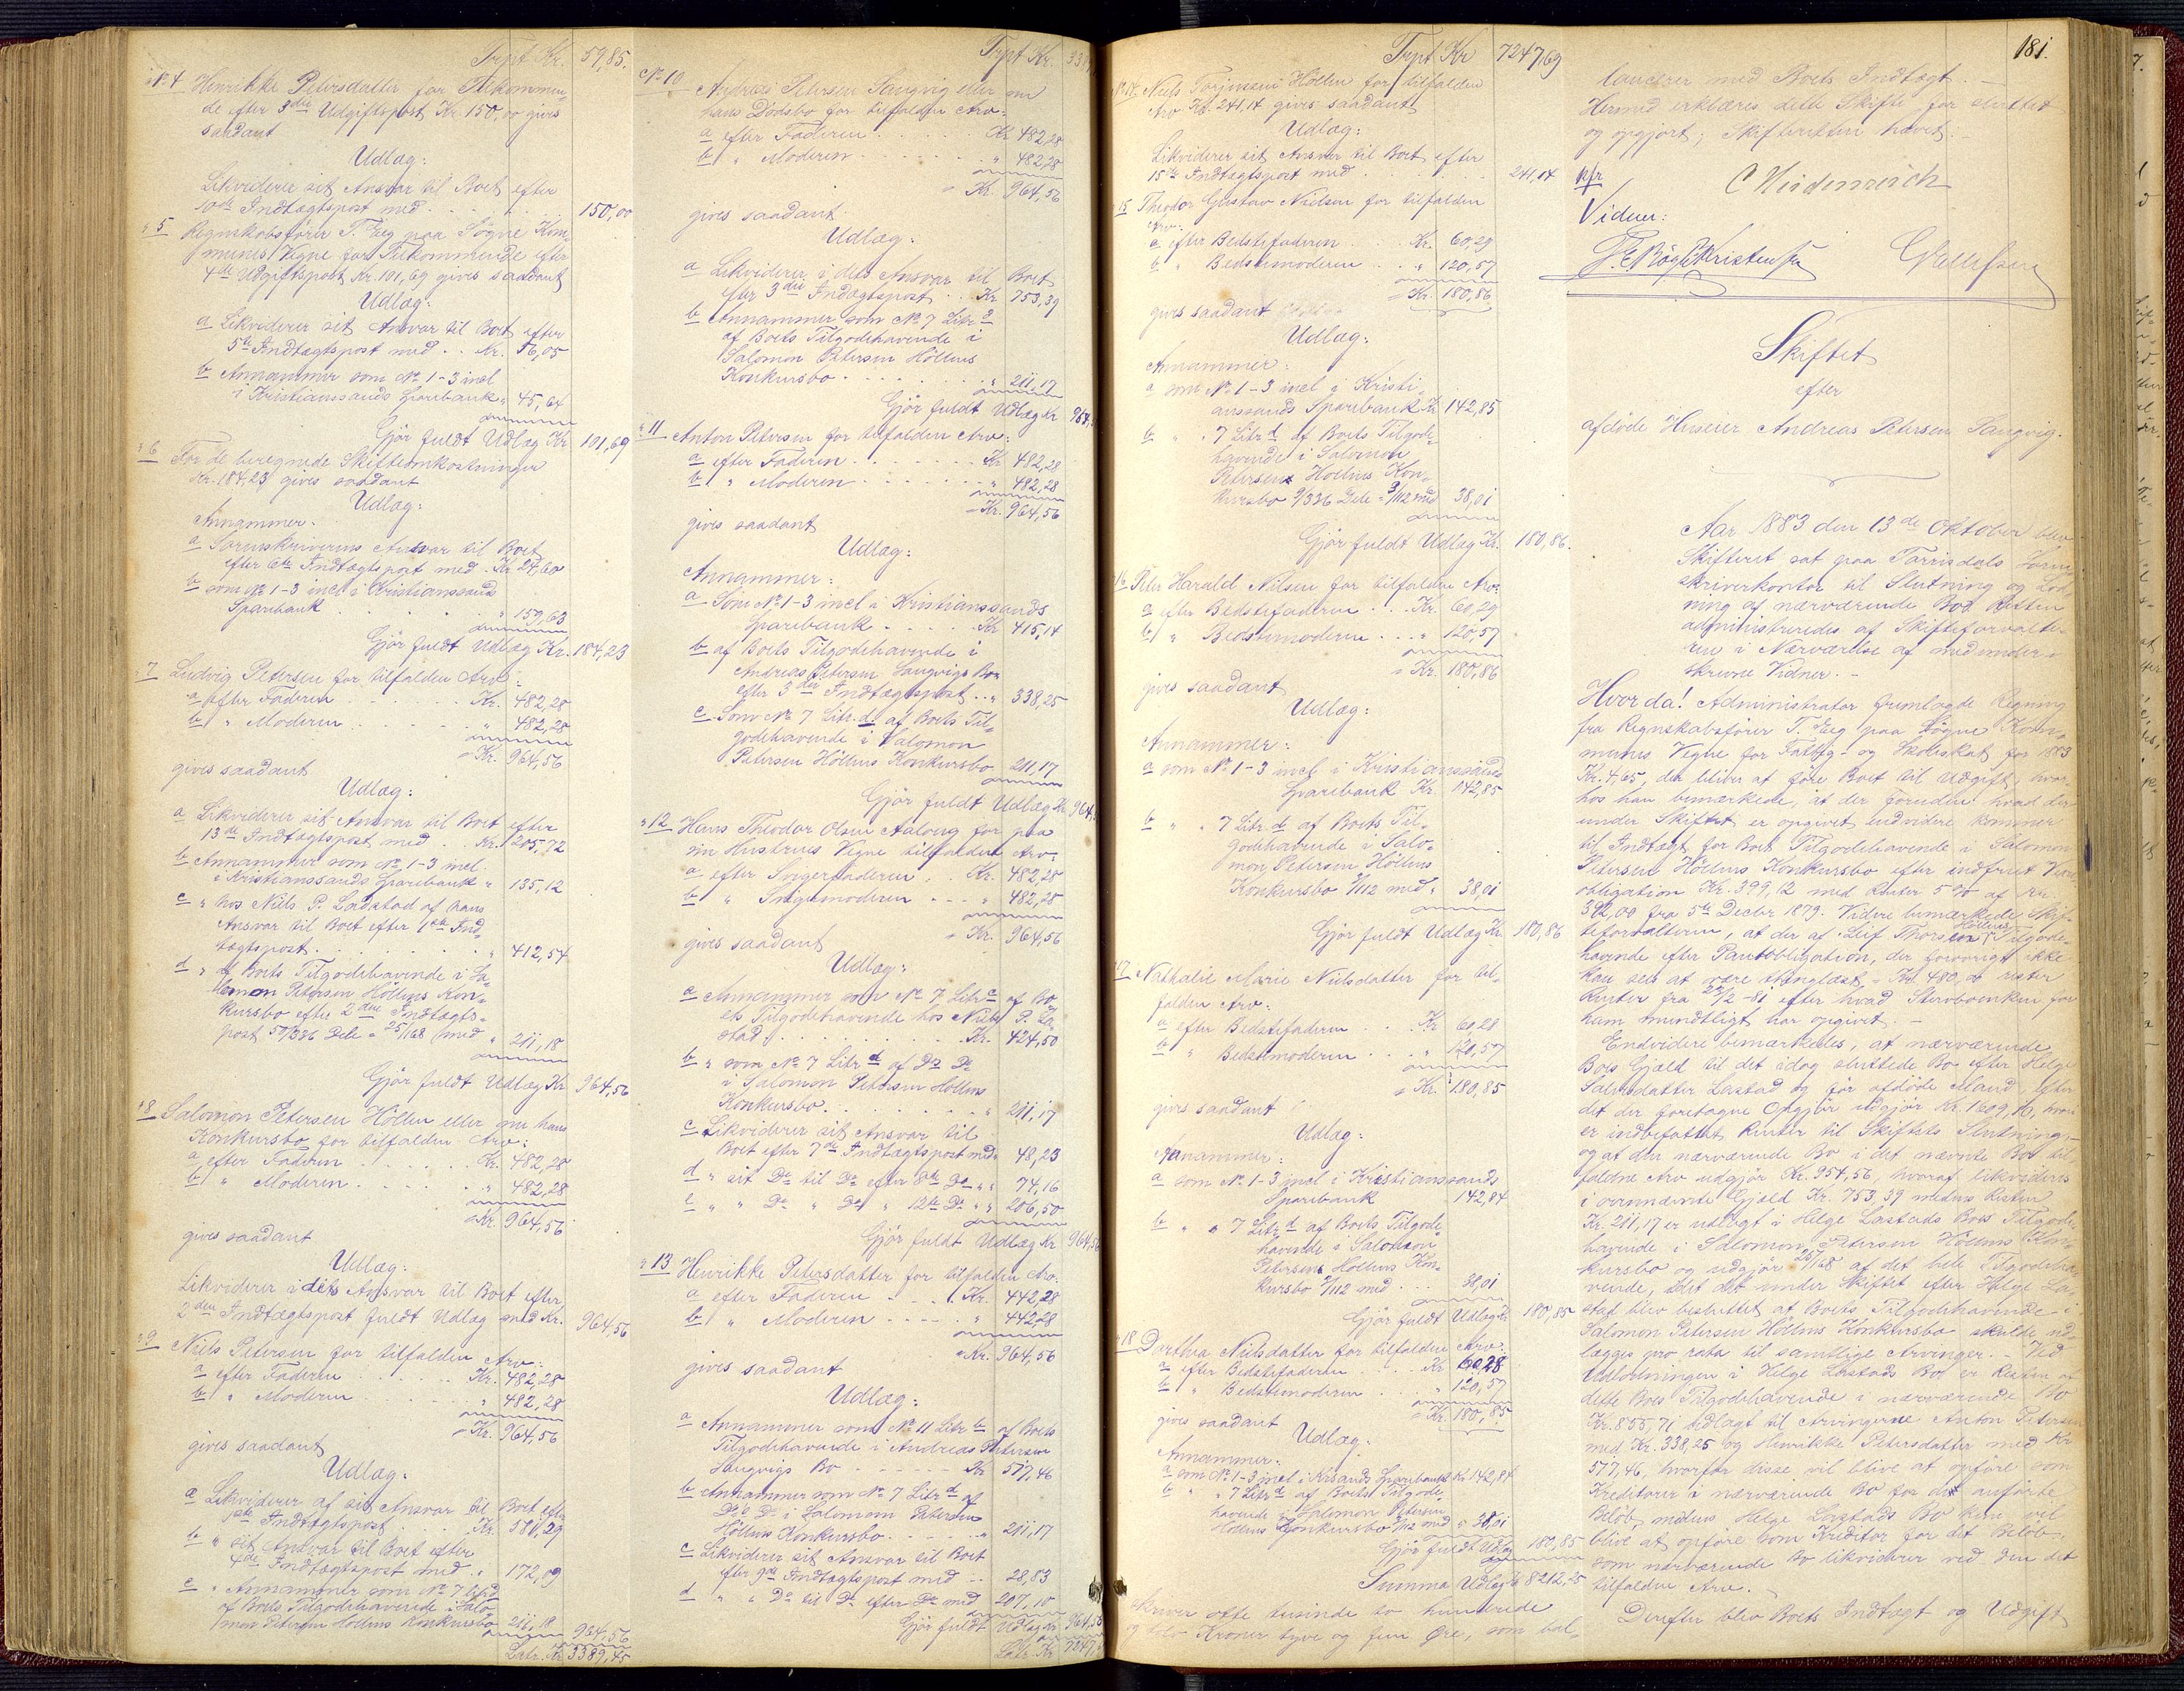 Trpt Kr. 59,85.
No 4 Henrikke Petersdatter for Tilkommen-
de efter 3die Udgiftspost Kr 150,00 gives
saadant
Udlæg:
Likviderer sit Ansvar til Boet efter
10de Indtægtspost med . . . 150,00
" 5 Regnskabsfører T. Eeg paa Søgne Kom-
munes Vegne for Tilkommende efter
4de Udgiftspost Kr. 101,69 gives saadant
Udlæg:
a Likviderer sit Ansvar til Boet efter
5te Indtægtspost med . . Kr. 56,05
b Annammer som No 1-3 incl
i Kristianssands Sparebank " 45,64
Gjør fuldt Udlæg Kr 101,69
" 6 For de beregnede Skifteomkostninger
Kr. 184,23 gives saadant
Udlæg:
Annammer:
a Sorenskriverens Ansvar til Boet
efter 6te Indtægtspost med . Kr 24,60
b som No 1-3 incl i Kristianssands
Sparebank . . . " 159,63
Gjør fuldt Udlæg Kr. 184,23
" 7 Ludvig Petersen for tilfalden Arv:
a efter Faderen . . . Kr. 482,28
b " Moderen . . . " 482,28
= Kr. 964,56
gives saadant
Udlæg:
a Likviderer sit Ansvar til Boet efter
13de Indtægtspost med . . Kr. 205,72
b Annammer som No 1-3 incl.
i Kristianssands Sparebank " 135,12
c " hos Niels P. Lastad af hans
Ansvar til Boet efter 1ste Ind-
tægtspost . . . " 412,54
d " af Boets Tilgodehavende i Sa-
lomon Petersen Höllens Kon-
kursbo efter 2den Indtægts-
post 50/336 Dele = 25/168 med " 211,18
Gjør fuldt Udlæg Kr 964,56
" 8 Salomon Petersen Höllen eller nu hans
Konkursbo for tilfalden Arv:
a efter Faderen . . . Kr. 482,28
b " Moderen . . . " 482,28
= Kr. 964,56
gives saadant
Udlæg:
Likviderer i dets Ansvar til Boet efter
2den Indtægtspost fuldt Udlæg med Kr. 964,56
" 9 Niels Petersen for tilfalden Arv:
a efter Faderen . . . Kr. 482,28
b " Moderen . . . " 482,28
= Kr. 964,56
gives saadant
Udlæg:
a Likviderer af sit Ansvar til Boet efter
1ste Indtægtspost . . . Kr. 581,29
b " sit Ansvar til Boet efter
4de Indtægtspost med . " 172,09
c " Annammer som No 7 Litr d
af Boets Tilgodehavende i Salo-
mon Petersen Höllens Konkursbo " 211,18 964,56
Latr. Kr 3389,45
Trpt Kr.
No 10 Andreas Petersen Langvig eller nu
hans Dødsbo for tilfalden Arv:
a efter Faderen . . . Kr 482,28
b " Moderen . . . " 482,28
= Kr. 964,56
gives saadant
Udlæg:
a Likviderer i dets Ansvar til Boet
efter 3die Indtægtspost . . Kr 753,39
b Annammer som No 7 Litr d
af Boets Tilgodehavende i
Salomon Petersen Höllens
Konkursbo . . . " 211,17
Gjør fuldt Udlæg Kr
" 11 Anton Petersen for tilfalden Arv:
a efter Faderen . . . Kr 482,28
b " Moderen . . . " 482,28
= Kr. 964,56
gives saadant
Udlæg:
Annammer:
a Som No 1-3 incl i Kristianssands
Sparebank . . . Kr 415,14
b af Boets Tilgodehavende i
Andreas Petersen Langvigs Bo
efter 3die Indtægtspost . . " 338,25
c Som No 7 Litr. d af Boets Til-
godehavende i Salomon
Petersen Höllens Konkursbo 211,17
Gjør fuldt Udlæg Kr
" 12 Hans Theodor Olsen Aaberg for paa
sin Hustrues Vegne tilfalden Arv:
a efter Svigerfaderen . . Kr. 482,28
b " Svigermoderen . . . " 482,28
= Kr. 964,56
gives saadant
Udlæg:
a Annammer som No 7 Litr c af Bo-
ets Tilgodehavende hos Niels P. La-
stad . . . Kr. 424,50
b " som No 7 Litr d af Do Do
i Salomon Petersen Höllens
Konkursbo . . . " 211,17
c Likviderer sit Ansvar til
Boet efter 7de Indtægtspost med " 48,23
d " sit Do til Do efter 8de Do " " 74,16
e " " Do " Do " 12te Do " " 206,50
Gjør fuldt Udlæg Kr 964,56
" 13 Henrikke Petersdatter for tilfalden Arv:
a efter Faderen . . . Kr. 442,28
b " Moderen . . . " 442,28
= Kr. 964,56
gives saadant
Udlæg:
a Annammer som No 11 Litr b af Boets
Tilgodehavende i Andreas Petersen
Langvigs Bo . . . Kr 517,46
b Annammer som No 7 Litr d af
Do Do i Salomon Petersen
Höllens Konkursbo . . . " 211,17
c Likviderer sit Ansvar til Boet
efter 9de Indtægtspost med . . 28,83
d " " Do til Do efter Do med 207,10
Gjør fuldt Udlæg Kr 964,56
Latr. Kr
Trpt Kr 7247,69
No 14 Niels Torjusen Höllen for tilfalden
Arv Kr. 241,14 gives saadant
Udlæg:
Likviderer sit Ansvar til Boet efter
15de Indtægtspost med . . . 241,14
" 15 Theodor Gustav Nielsen for tilfalden
Arv:
a efter Bedstefaderen . . Kr. 60,29
b " Bedstemoderen . . " 120,57
= Kr. 180,86
gives saadant
Udlæg:
Annammer:
a som No 1-3 incl i Kristi-
anssands Sparebank Kr 142,85
b " " 7 Litr d af Boets Tilgode-
havende i Salomon
Petersens Höllens Kon-
kursbo 9/336 Dele = 3/112 med 38,01
Gjør fuldt Udlæg Kr. 180,86.
" 16 Peter Harald Nilsen for tilfalden Arv:
a efter Bedstefaderen . . Kr. 60,29
b " Bedstemoderen . . . " 120,57
= Kr. 180,86
gives saadant
Udlæg:
Annammer:
a som No 1-3 incl i Kristianssands
Sparebank Kr. 142,85
b " " 7 Litr d af Boets Til-
godehavende i Salo-
mon Petersen Höllens
Konkursbo 3/112 med " 38,01
Gjør fuldt Udlæg Kr. 180,86
" 17 Nathalie Marie Nielsdatter for til-
falden Arv:
a efter Bedstefaderen . . Kr 60,28
b " Bedstemoderen . . . " 120,57
= Kr. 180,85
gives saadant
Udlæg:
Annammer:
a som No 1-3 incl i Kristianssands
Sparebank 142,84
b " " 7 Litr d af Boets Tilgode-
havende i Salomon
Petersens Höllens Kon-
kursbo 3/112 med . . . 38,01
Gjør fuldt Udlæg Kr 180,85
" 18 Dorthea Nielsdatter for tilfalden Arv:
a efter Bedstefaderen . . . Kr 60,28
b " Bedstemoderen . . . " 120,57
= Kr. 180,85
gives saadant
Udlæg:
Annammer:
a som No 1-3 incl i Krsands Sparebank Kr 142,84
b " " 7 Litr d af Boets Tilgode-
havende i Salomon Petersen
Höllens Konkursbo 3/112 med " 38,01
Gjør fuldt Udlæg 180,85
Summa Udlæg Kr 8212,25
skriver otte tusinde to hundrede
og tolv Kroner tyve og fem Øre, som bal-
181.
lancerer med Boets Indtægt. -
Hermed erklæres dette Skifte for sluttet
og opgjort; Skifteretten hævet. -
C Heidenreich
Vidner:
Skiftet
efter
afdøde Huseier Andreas Petersen Langvig.
Aar 1883 den 13de Oktober blev
Skifteret sat paa Torrisdals Soren-
skriverkontor til Slutning og Lod-
ning af nærværende Bo. Retten
administreredes af Skifteforvalte-
ren i Nærværelse af medunder-
skrevne Vidner. -
Hvor da! Administrator fremlagde Regning
fra Regnskabsfører T. Eeg paa Søgne Kom-
munes Vegne for Fattig- og Skoleskat for 1883
Kr. 4,65, der bliver at føre Boet til Udgift, hvor-
hos han bemærkede, at der foruden hvad der
under Skiftet er opgivet endvidere kommer
til Indtægt for Boet Tilgodehavende i Salomon
Petersen Höllens Konkursbo efter indfriet Vexel-
obligation Kr. 399,12 med Renter 5 % af Kr
392,00 fra 5te Decbr 1879. Videre bemærkede Skif-
teforvalteren, at der af Leif Thorsen Höllens Tilgode-
havende efter Pantobligation, der forøvrigt ikke
kan sees at være thinglæst, - Kr. 480,00 rester
Renter fra 22/2 -81 efter hvad Sterboenken for
ham mundtligt har opgivet. -
Endvidere bemærkedes, at nærværende
Bos Gjæld til det idag sluttede Bo efter Helge
Salvesdatter Lastad og før afdøde Mand efter
det der foretagne Opgjør udgjør Kr. 1609,10, hvori
er indbefattet Renter til Skiftets Slutning, -
og at den nærværende Bo i det nævnte Bo til-
faldne Arv udgjør Kr. 964,56, hvoraf likvideres
i ovennævnte Gjæld Kr. 753,39 medens Resten
Kr. 211,17 er udlagt i Helge Lastads Bos Tilgode-
havende i Salomon Petersen Höllens Kon-
kursbo og udgjør 25/168 af det hele Tilgodeha-
vende, idet det under Skiftet efter Helge La-
stad blev besluttet at Boets Tilgodehavende i
Salomon Petersen Höllens Konkursbo skulde ud-
lægges pro rata til samtlige Arvinger. - Ved
Udlodningen i Helge Lastads Bo er Resten af
dette Boes Tilgodehavende i nærværende Bo
Kr. 855,71 udlagt til Arvingerne Anton Petersen
med Kr. 338,25 og Henrikke Petersdatter med Kr
517,46, hvorfor disse vil blive at opføre som
Kreditorer i nærværende Bo for det anførte
Beløb, medens Helge Lastads Bo kun vil
blive at opføre som Kreditor for det Beløb,
som nærværende Bo likviderer ved den det
tilfaldne Arv. -
Derefter blev Boets Indtægt og Udgift